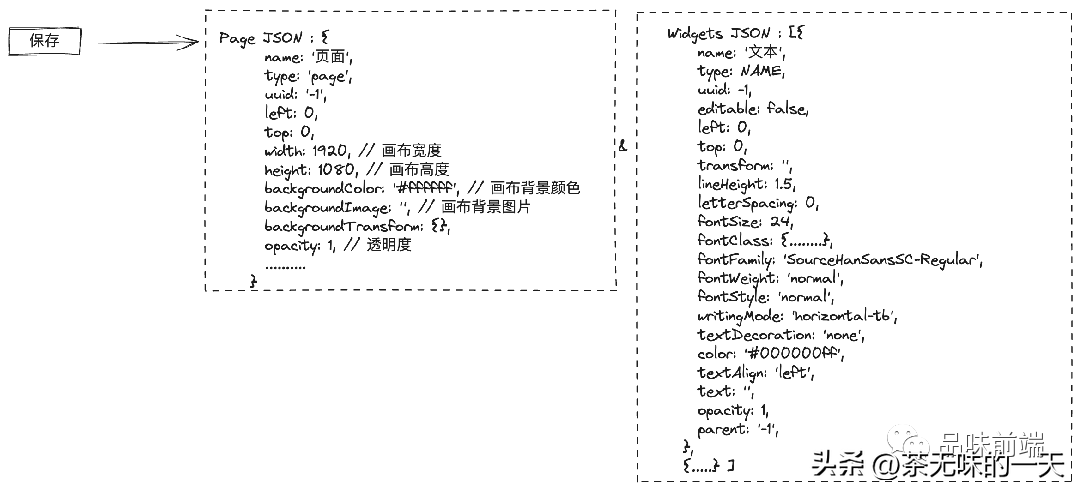 保存
Page JSON : {
name: '页面',
type: 'page',
uuid: '-1',
left: 0,
top: 0,
width: 1920, // 画布宽度
height: 1080, // 画布高度
backgroundColor: '#ffffff', // 画布背景颜色
backgroundImage: '', // 画布背景图片
backgroundTransform: {},
opacity: 1, // 透明度
..........
}
&
Widgets JSON : [{
name: '文本',
type: NAME,
uuid: -1,
editable: false,
left: 0,
top: 0,
transform: '',
lineHeight: 1.5,
letterSpacing: 0,
fontSize: 24,
fontClass: {........},
fontFamily: 'SourceHanSansSC-Regular',
fontWeight: 'normal',
fontStyle: 'normal',
writingMode: 'horizontal-tb',
textDecoration: 'none',
color: '#000000ff',
textAlign: 'left',
text: '',
opacity: 1,
parent: '-1',
},
{.....} ]
品味前端
头条 @茶无味的一天